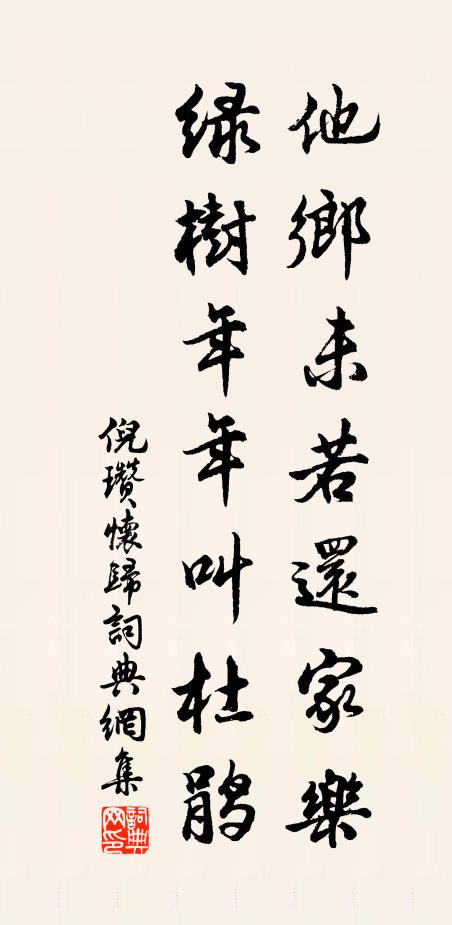 他鄉未若還家樂
綠樹年年叫杜鵑
倪瓚懷歸詞典網集
詞典網印